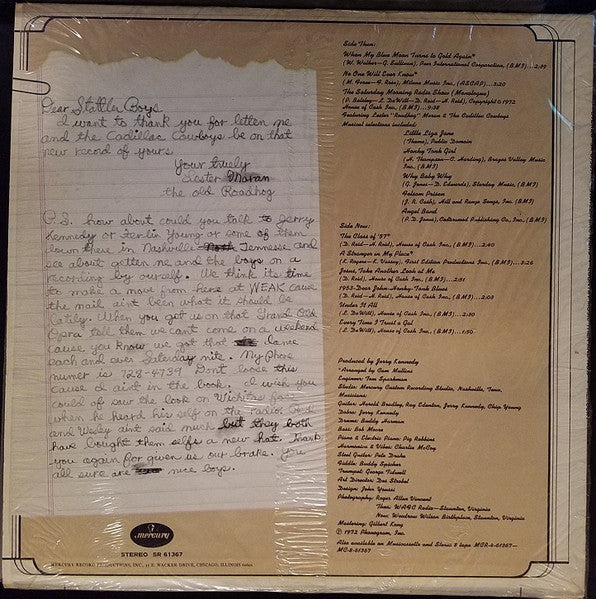 Dear Statler Boys,
I want to thank you for letten me
and the Cadillac Cowboys be on that
new record of yours.
Your truely
Lester Moran
the old Roadhog
P.S. how about could you talk to Jerry
Kennedy or Ferlin Young or some of them
down there in Nashville Tennesse and
see about getten me and the boys on a
recording by ourself. We think its time
to make a move from here at WEAK cause
the mail aint been what it should be
latily. When you got us on that Grand Old
Opra tell them we cant come on a weekend
cause you know we got that dance
each and ever Saturday nite. My phone
numer is 728-4739 Dont loose this
cause I aint in the book. I wish you
could of saw the look on Wichitas face
when he heard his self on the radio. Red
and Wesley aint said much but they both
have bought them selfs a new hat. Thank
you again for given us our brake. You
all sure are nice boys.
mercury
STEREO SR 61367
MERCURY RECORD PRODUCTIONS, INC., 35 E. WACKER DRIVE, CHICAGO, ILLINOIS 60601
Side Then:
When My Blue Moon Turns to Gold Again*
(W. Walker—G. Sullivan), Peer International Corporation, (BMI)...2:19
No One Will Ever Know*
(M. Foree—F. Rose), Milene Music Inc., (ASCAP)...2:20
The Saturday Morning Radio Show (Monologue)
(P. Balsley—L. DeWitt—D. Reid—H. Reid), Copyright © 1972
House of Cash Inc., (BMI)...9:08
Featuring Lester "Roadhog" Moran & The Cadillac Cowboys
Musical selections included:
Little Liza Jane
(Theme), Public Domain
Honky Tonk Girl
(H. Thompson—C. Harding), Brazos Valley Music
Inc., (BMI)
Why Baby Why
(G. Jones—D. Edwards), Starday Music, (BMI)
Folsom Prison
(J. R. Cash), Hill and Range Songs, Inc., (BMI)
Angel Band
(P. D. Jones), Cedarwood Publishing Co., Inc., (BMI)
Side Now:
The Class of '57*
(D. Reid—H. Reid), House of Cash Inc., (BMI)...2:40
A Stranger in My Place*
(K. Rogers—K. Vassey), First Edition Productions Inc., (BMI)...3:26
Jesus, Take Another Look at Me
(D. Reid), House of Cash Inc., (BMI)...2:51
1953-Dear John-Honky-Tonk Blues
(D. Reid—H. Reid), House of Cash Inc., (BMI)...2:03
Under It All
(L. DeWitt), House of Cash Inc., (BMI)...2:30
Every Time I Trust a Gal
(L. DeWitt), House of Cash Inc., (BMI)...1:50
Produced by Jerry Kennedy
*Arranged by Cam Mullins
Engineer: Tom Sparkman
Studio: Mercury Custom Recording Studio, Nashville, Tenn.
Musicians:
Guitar: Harold Bradley, Ray Edenton, Jerry Kennedy, Chip Young
Dobro: Jerry Kennedy
Drums: Buddy Harman
Bass: Bob Moore
Piano & Electric Piano: Pig Robbins
Harmonica & Vibes: Charlie McCoy
Steel Guitar: Pete Drake
Fiddle: Buddy Spicher
Trumpet: George Tidwell
Art Director: Des Strobel
Design: John Youssi
Photography: Roger Allen Vincent
Then: WAGC Radio—Staunton, Virginia
Now: Woodrow Wilson Birthplace, Staunton, Virginia
Mastering: Gilbert Kong
© 1972 Phonogram, Inc.
Also available on Musicassette and Stereo 8 tape MCR-4-61367—
MC-8-61367